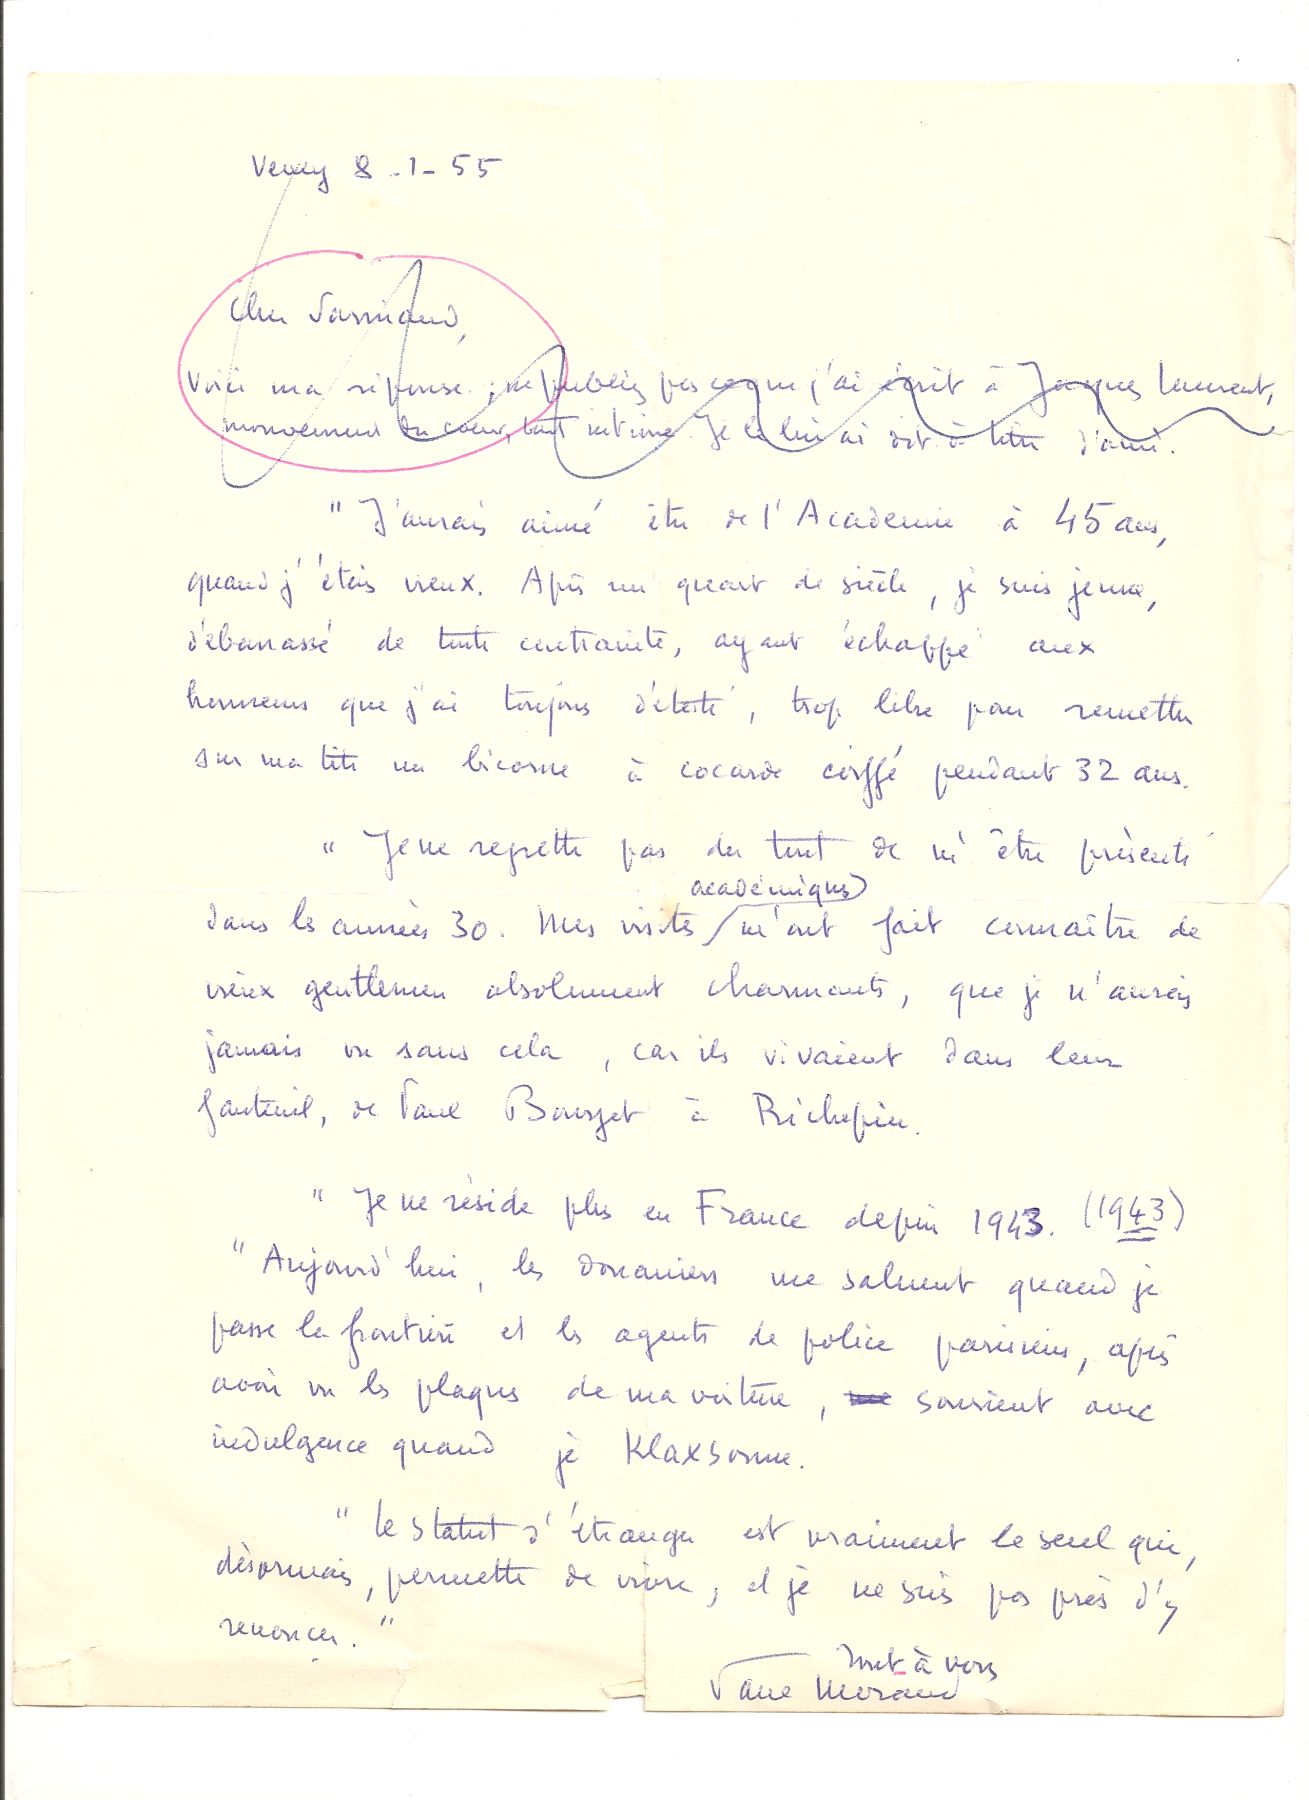 Vevey 8-1-55
Cher Parinaud,
Voici ma réponse ; ne publiez pas ce que j'ai écrit à Jacques Laurent,
mouvement du coeur, tout intime. Je le lui ai dit à titre d'ami.
" J'aurais aimé être de l'Academie à 45 ans,
quand j'étais vieux. Après un quart de siècle, je suis jeune,
débarrassé de toute contrainte, ayant échappé aux
honneurs que j'ai toujours détesté, trop libre pour remettre
sur ma tête un bicorne à cocarde coiffé pendant 32 ans.
" Je ne regrette pas du tout de m'être présenté
académiques
dans les années 30. Mes visites m'ont fait connaître de
vieux gentlemen absolument charmants, que je n'aurais
jamais vu sans cela, car ils vivaient dans leur
fauteuil, de Paul Bourget à Richepin.
" Je ne réside plus en France depuis 1943. (1943)
" Aujourd'hui, les douaniers me saluent quand je
passe la frontière et les agents de police parisiens, après
avoir vu les plaques de ma voiture, me sourient avec
indulgence quand je Klaxsonne.
" Le statut d'étranger est vraiment le seul qui,
désormais, permette de vivre, et je ne suis pas près d'y
renoncer."
Tout à vous
Paul Morand